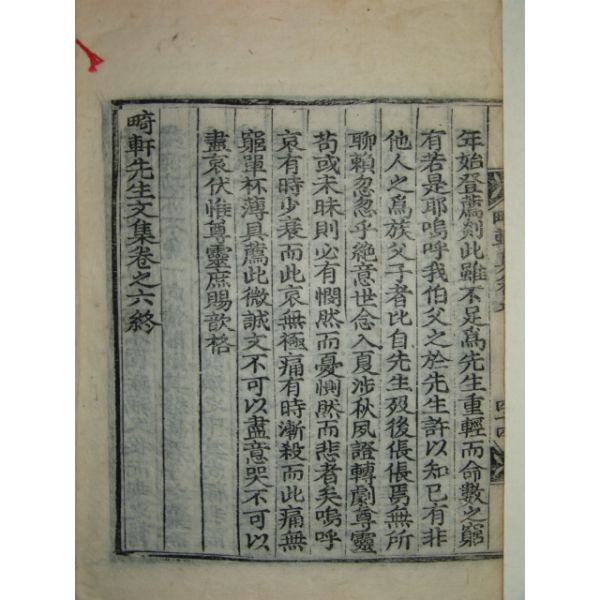 年始登薦剡此雖不足爲先生重輕而命數之窮
有若是耶嗚呼我伯父之於先生許以知已有非
他人之爲族父子者比自先生歿後倀倀焉無所
聊賴忽忽乎絶意世念入夏涉秋夙證轉劇尊靈
苟或未昧則必有憫然而憂惻然而悲者矣嗚呼
哀有時少衰而此哀無極痛有時漸殺而此痛無
窮單杯薄具薦此微誠文不可以盡意哭不可以
盡哀伏惟尊靈庶賜歆格
畸軒先生文集卷之六終